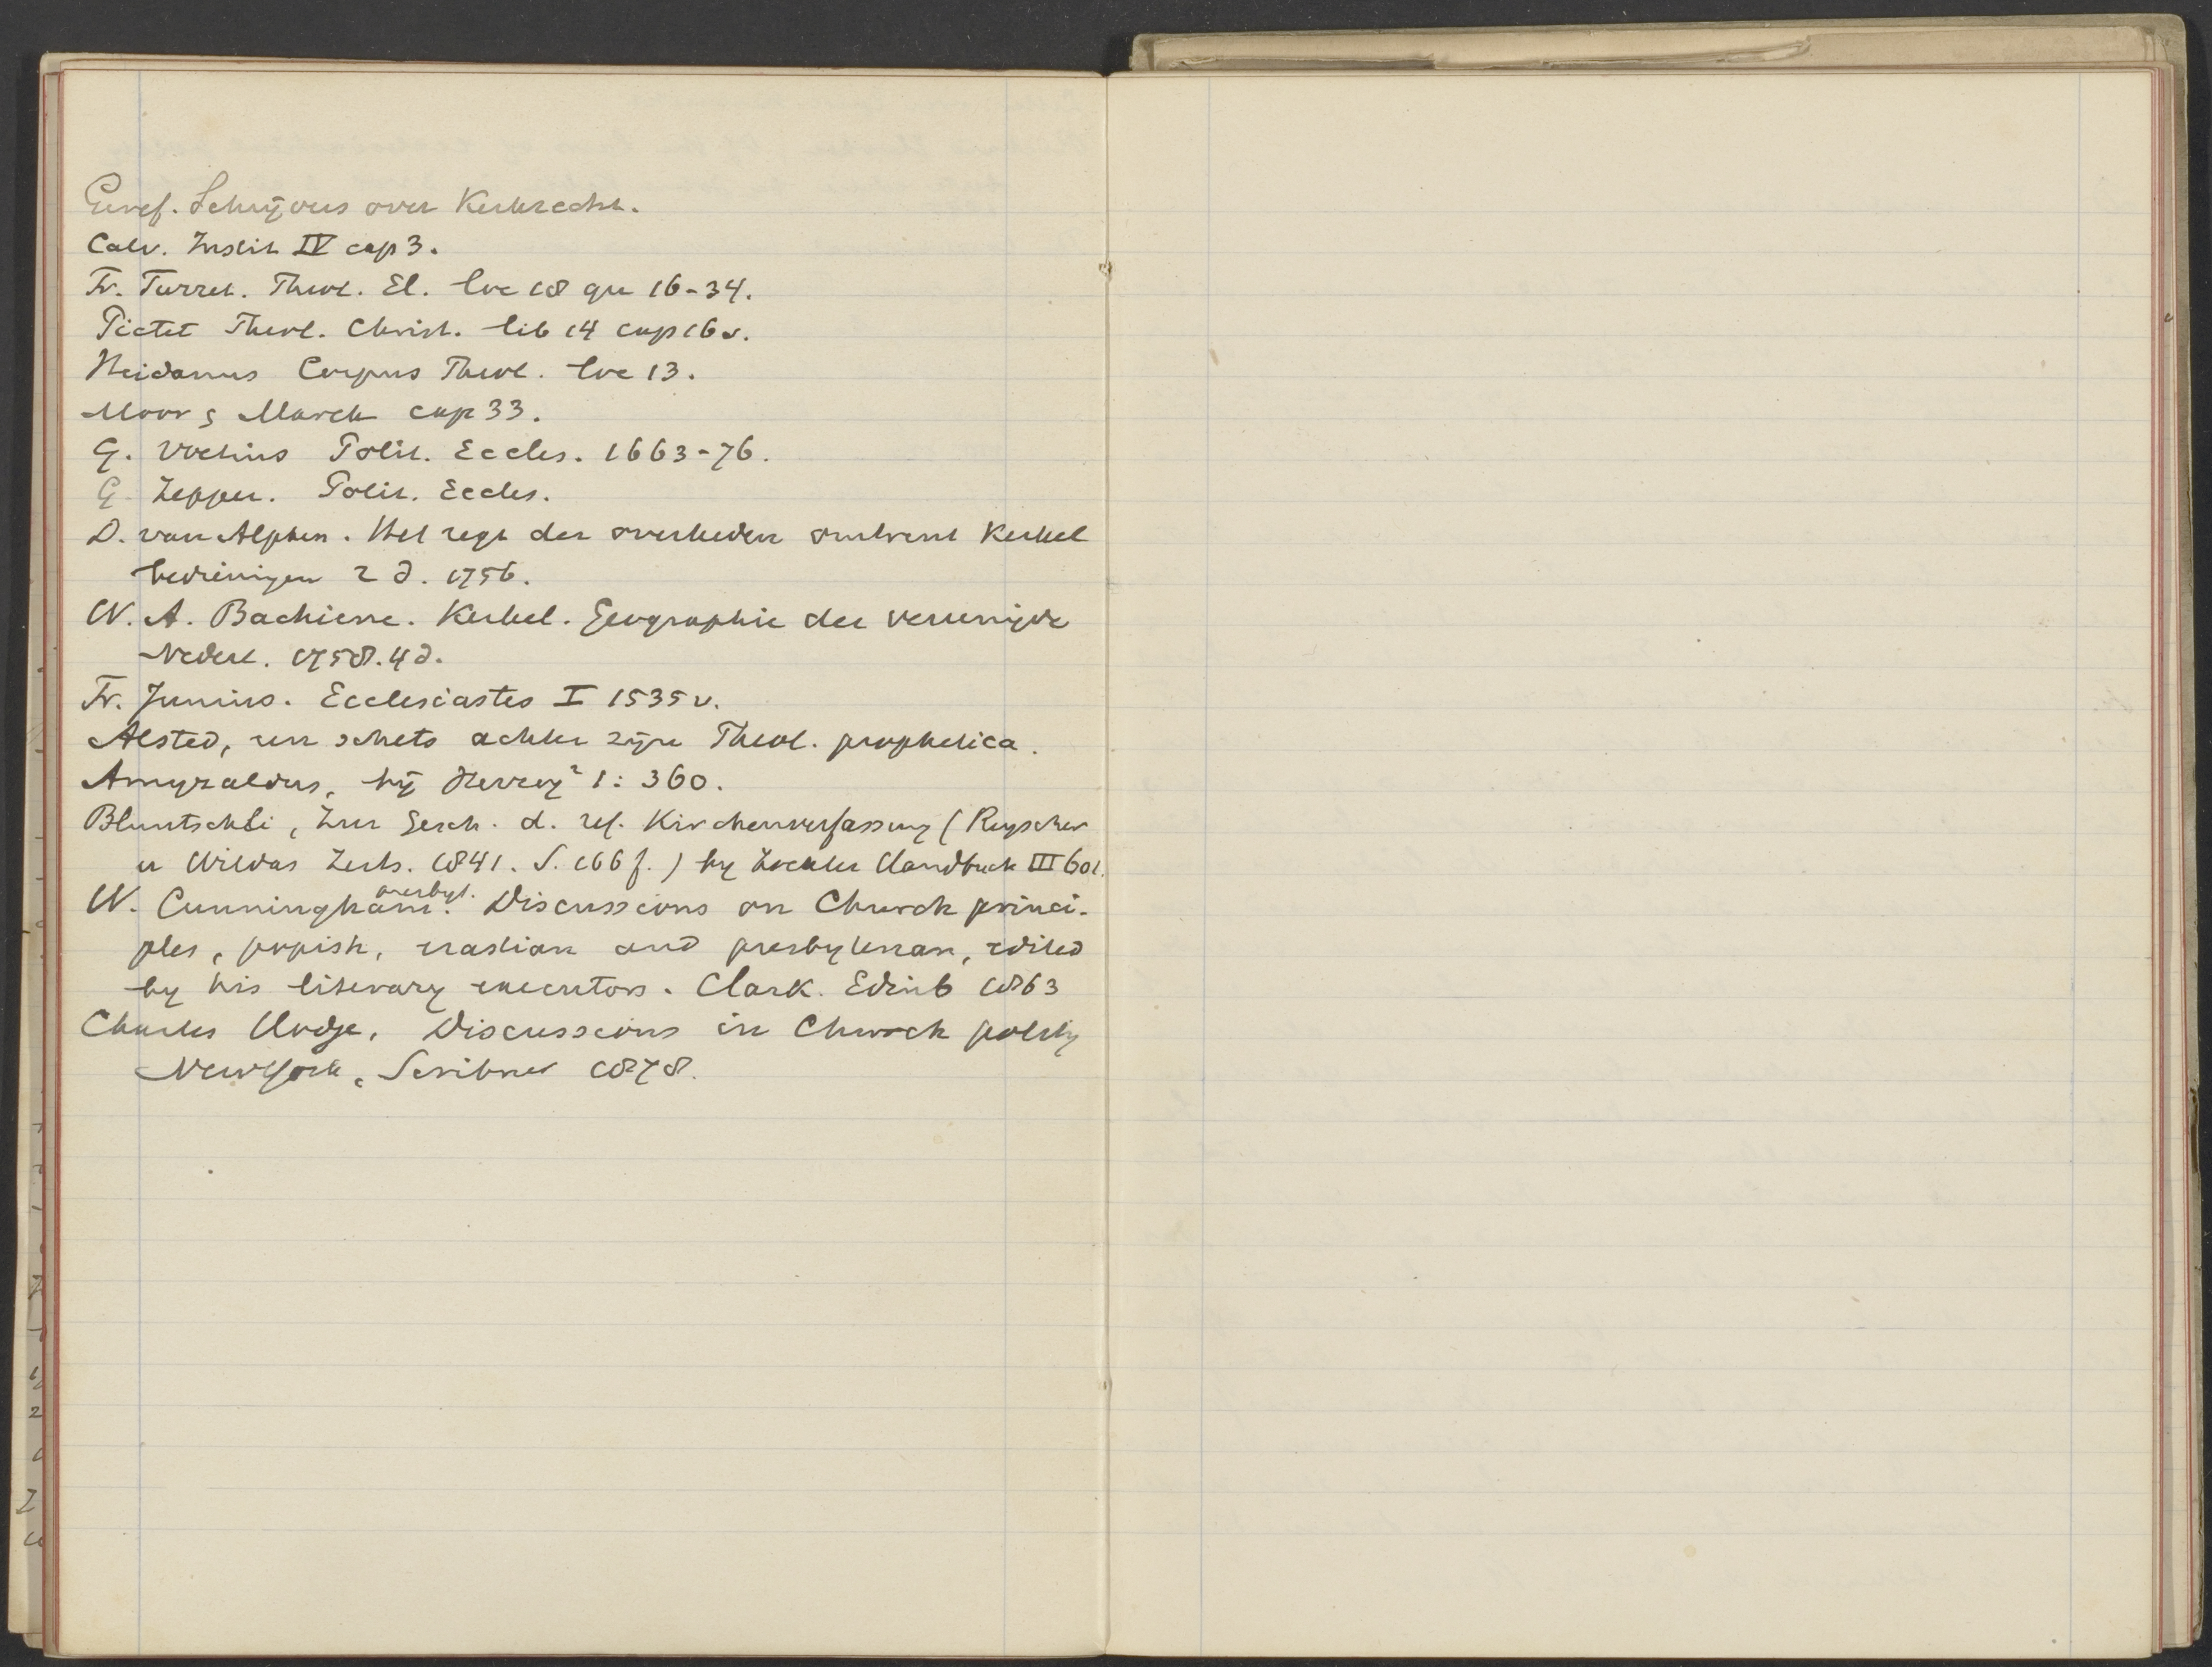 Geref. Schrijvers over Kerkrecht.
Calv. Instit IV cap 3.
Fr. Turret. Theol. El. loc 18 qu 16-34.
Pictet Theol. Christ. lib 14 cap 16 v.
Heidanus Corpus Theol. loc 13.
Moor s Marck cap 33.
G. Voetius Polit. Eccles. 1663-76.
G. Zepper. Polit. Eccles.
D. van Alphen. Het regt der overheden omtrent Kerkel
bedieningen 2 d. 1756.
W. A. Bachiene. Kerkel. Geographie der vereenigde
Nederl. 1758. 4 d.
Fr. Junius. Ecclesiastes I 1535 v.
Alsted, een schets achter zijne Theol. prophetica.
Amyraldus, bij Herzog² 1: 360.
Bluntschli, Zur Gesch. d. ref. Kirchenverfassung (Reyscher
u Wildas Zeits. 1841. S. 166 f.) by Zockler Handbuch III 601.
W. Cunningham. presbyt. Discussions on Church princi-
ples, popish, erastian and presbyterian, edited
by his literary executors. Clark. Edinb 1863
Charles Hodge, Discussions in Church polity
New York, Scribner 1878.